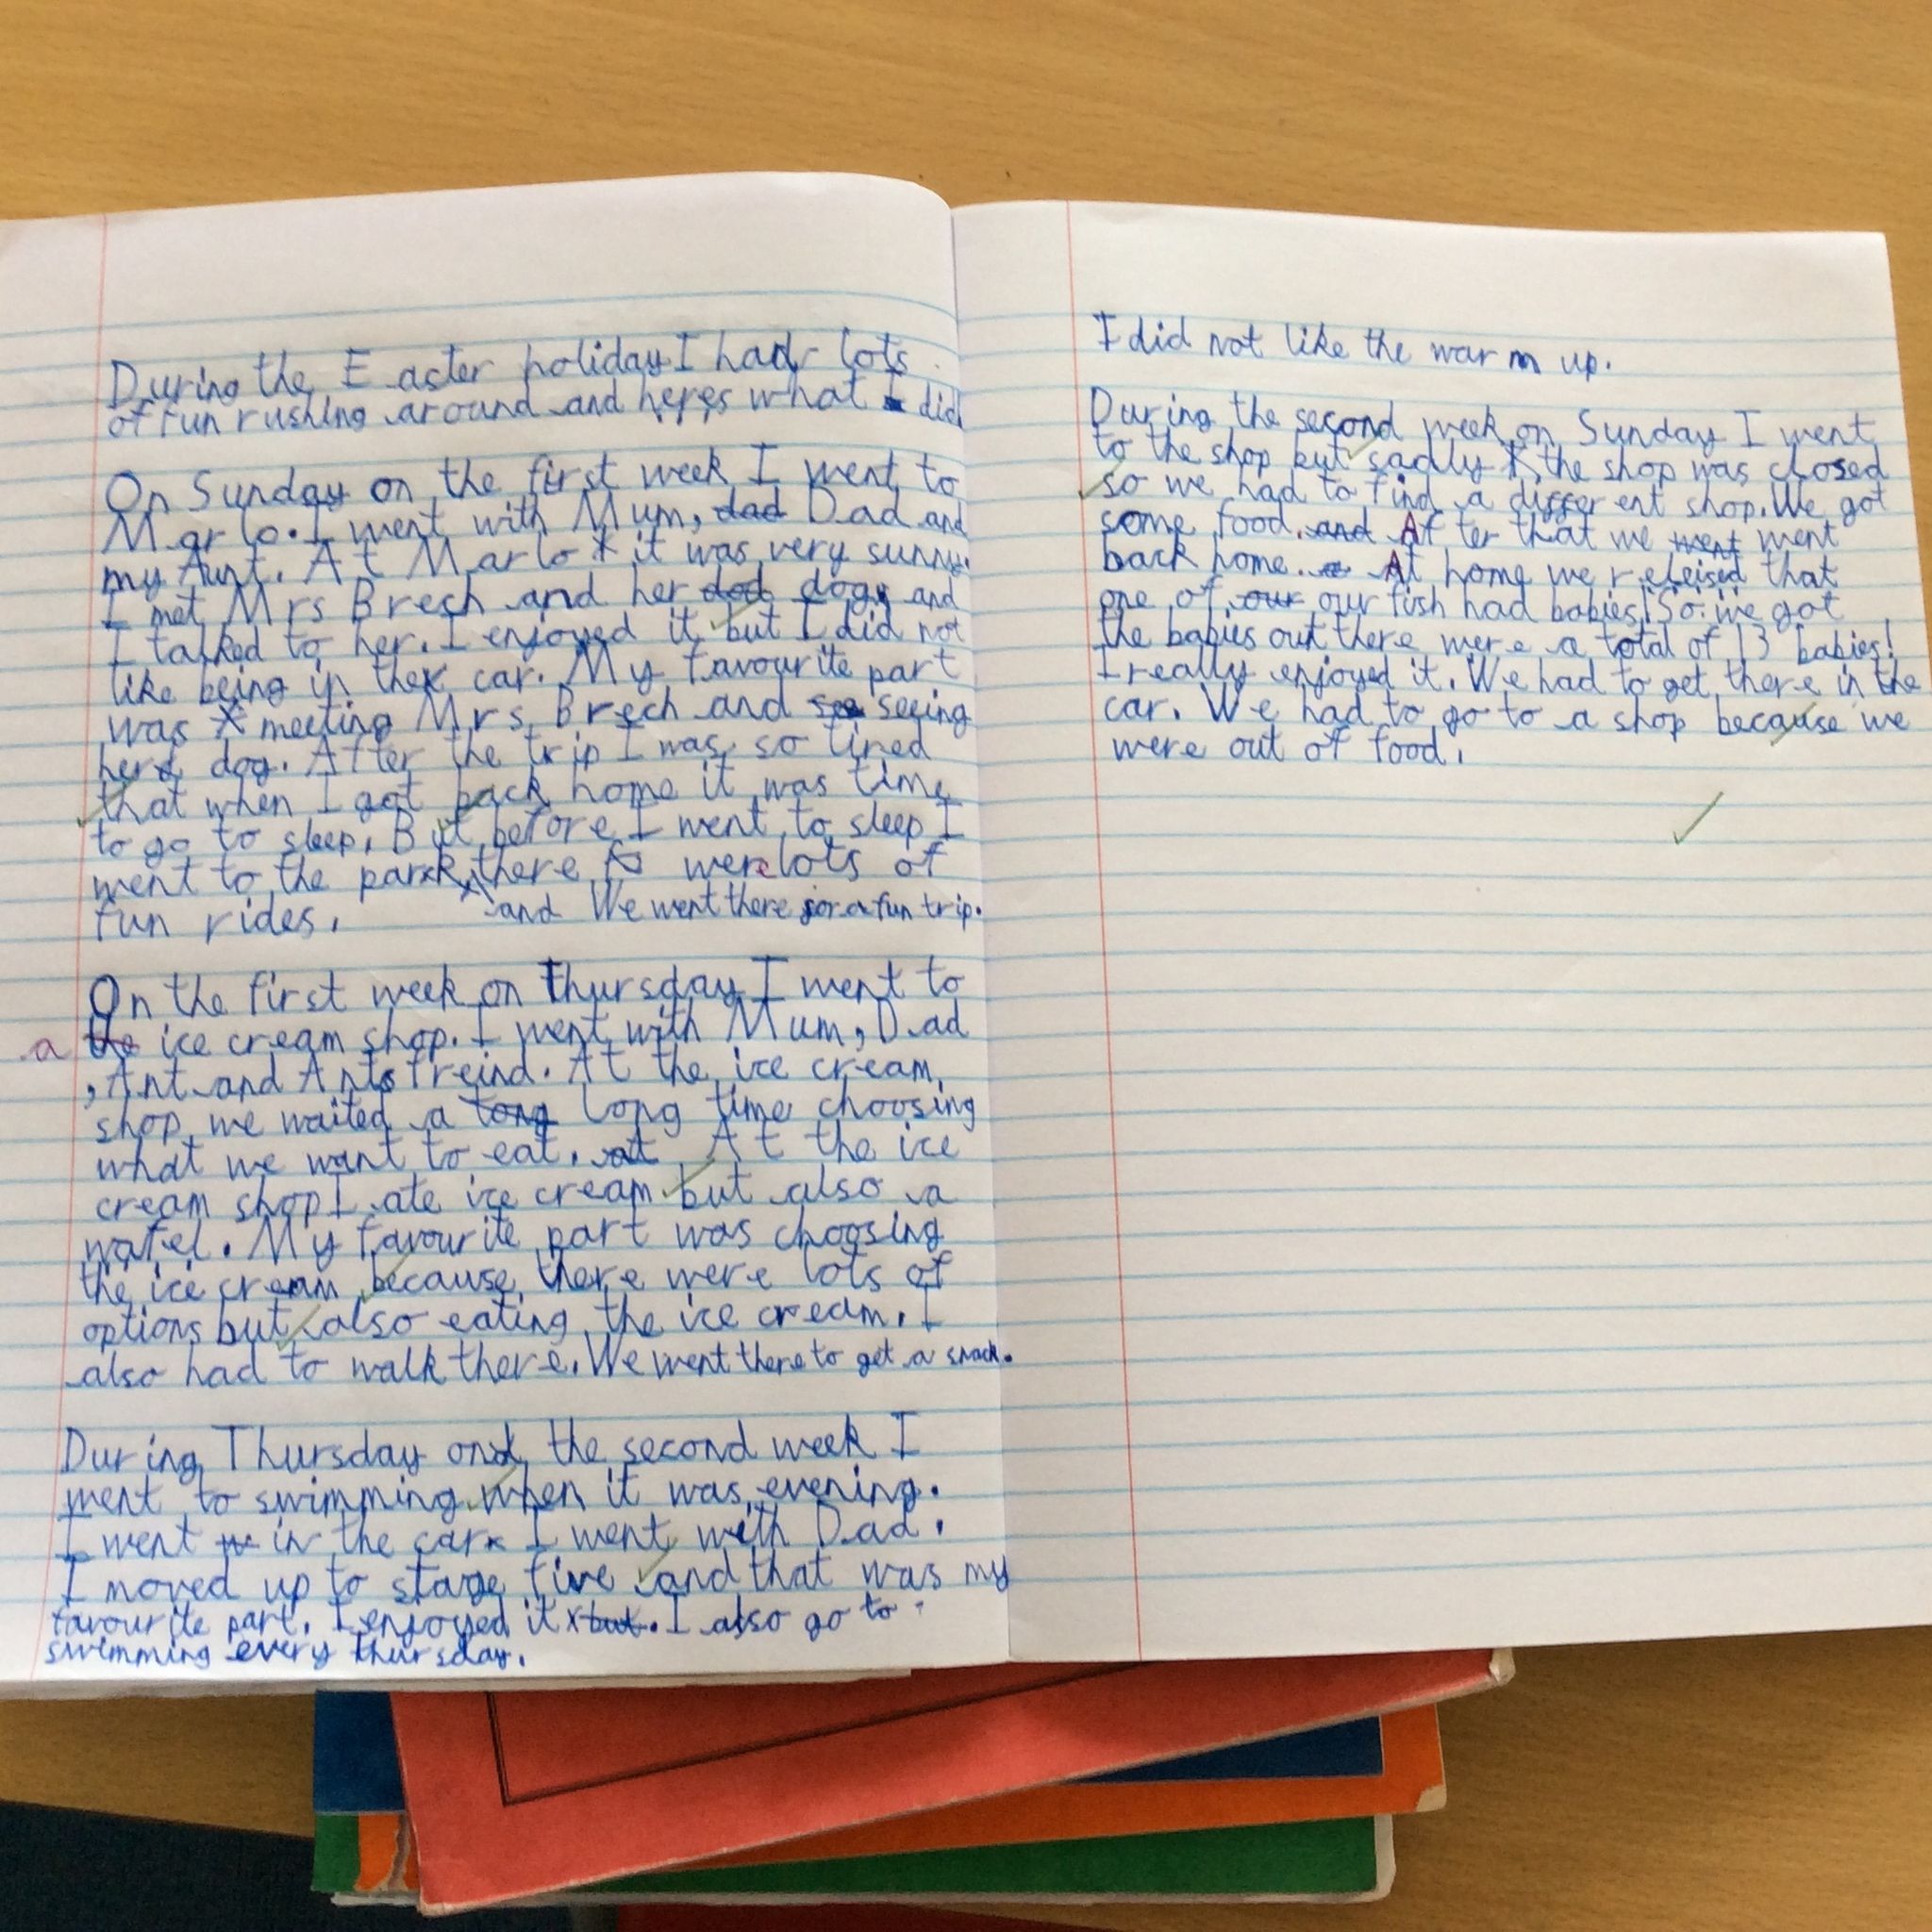 During the Easter holiday I had lots
of fun rushing around and heres what I did
On Sunday on the first week I went to
Marlo. I went with Mum, dad Dad and
my Aunt. At Marlo it was very sunny.
I met Mrs Brech and her dod dog, and
I talked to her. I enjoyed it but I did not
like being in the car. My favourite part
was meeting Mrs Brech and see seeing
her dog. After the trip I was so tired
that when I got back home it was time
to go to sleep. But before I went to sleep I
went to the park there were lots of
fun rides. and We went there for a fun trip.
On the first week on Thursday I went to
a the ice cream shop. I went with Mum, Dad
, Ant and Ants freind. At the ice cream
shop we waited a tong long time choosing
what we want to eat. at At the ice
cream shop I ate ice cream but also a
wafel. My favourite part was choosing
the ice cream because there were lots of
options but also eating the ice cream. I
also had to walk there. We went there to get a snack.
During Thursday on the second week I
went to swimming when it was evening.
I went in the car I went with Dad.
I moved up to stage five and that was my
favourite part. I enjoyed it but. I also go to
swimming every thursday.
I did not like the warm up.
During the second week on Sunday I went
to the shop but sadly the shop was closed
so we had to find a different shop. We got
some food. and After that we went went
back home. At home we releised that
one of our our fish had babies! So we got
the babies out there were a total of 13 babies!
I really enjoyed it. We had to get there in the
car. We had to go to a shop because we
were out of food.